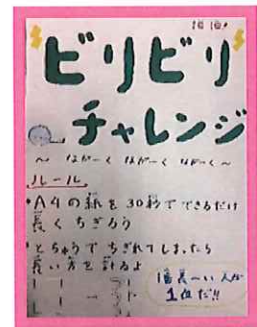 ビリビリ
チャレンジ
～ながーく ながーく ながーく～
ルール
・A4の紙を30秒でできるだけ
長くちぎろう
・とちゅうでちぎれてしまったら
長い方を計るよ
1番長ーい人が
1位だ!!